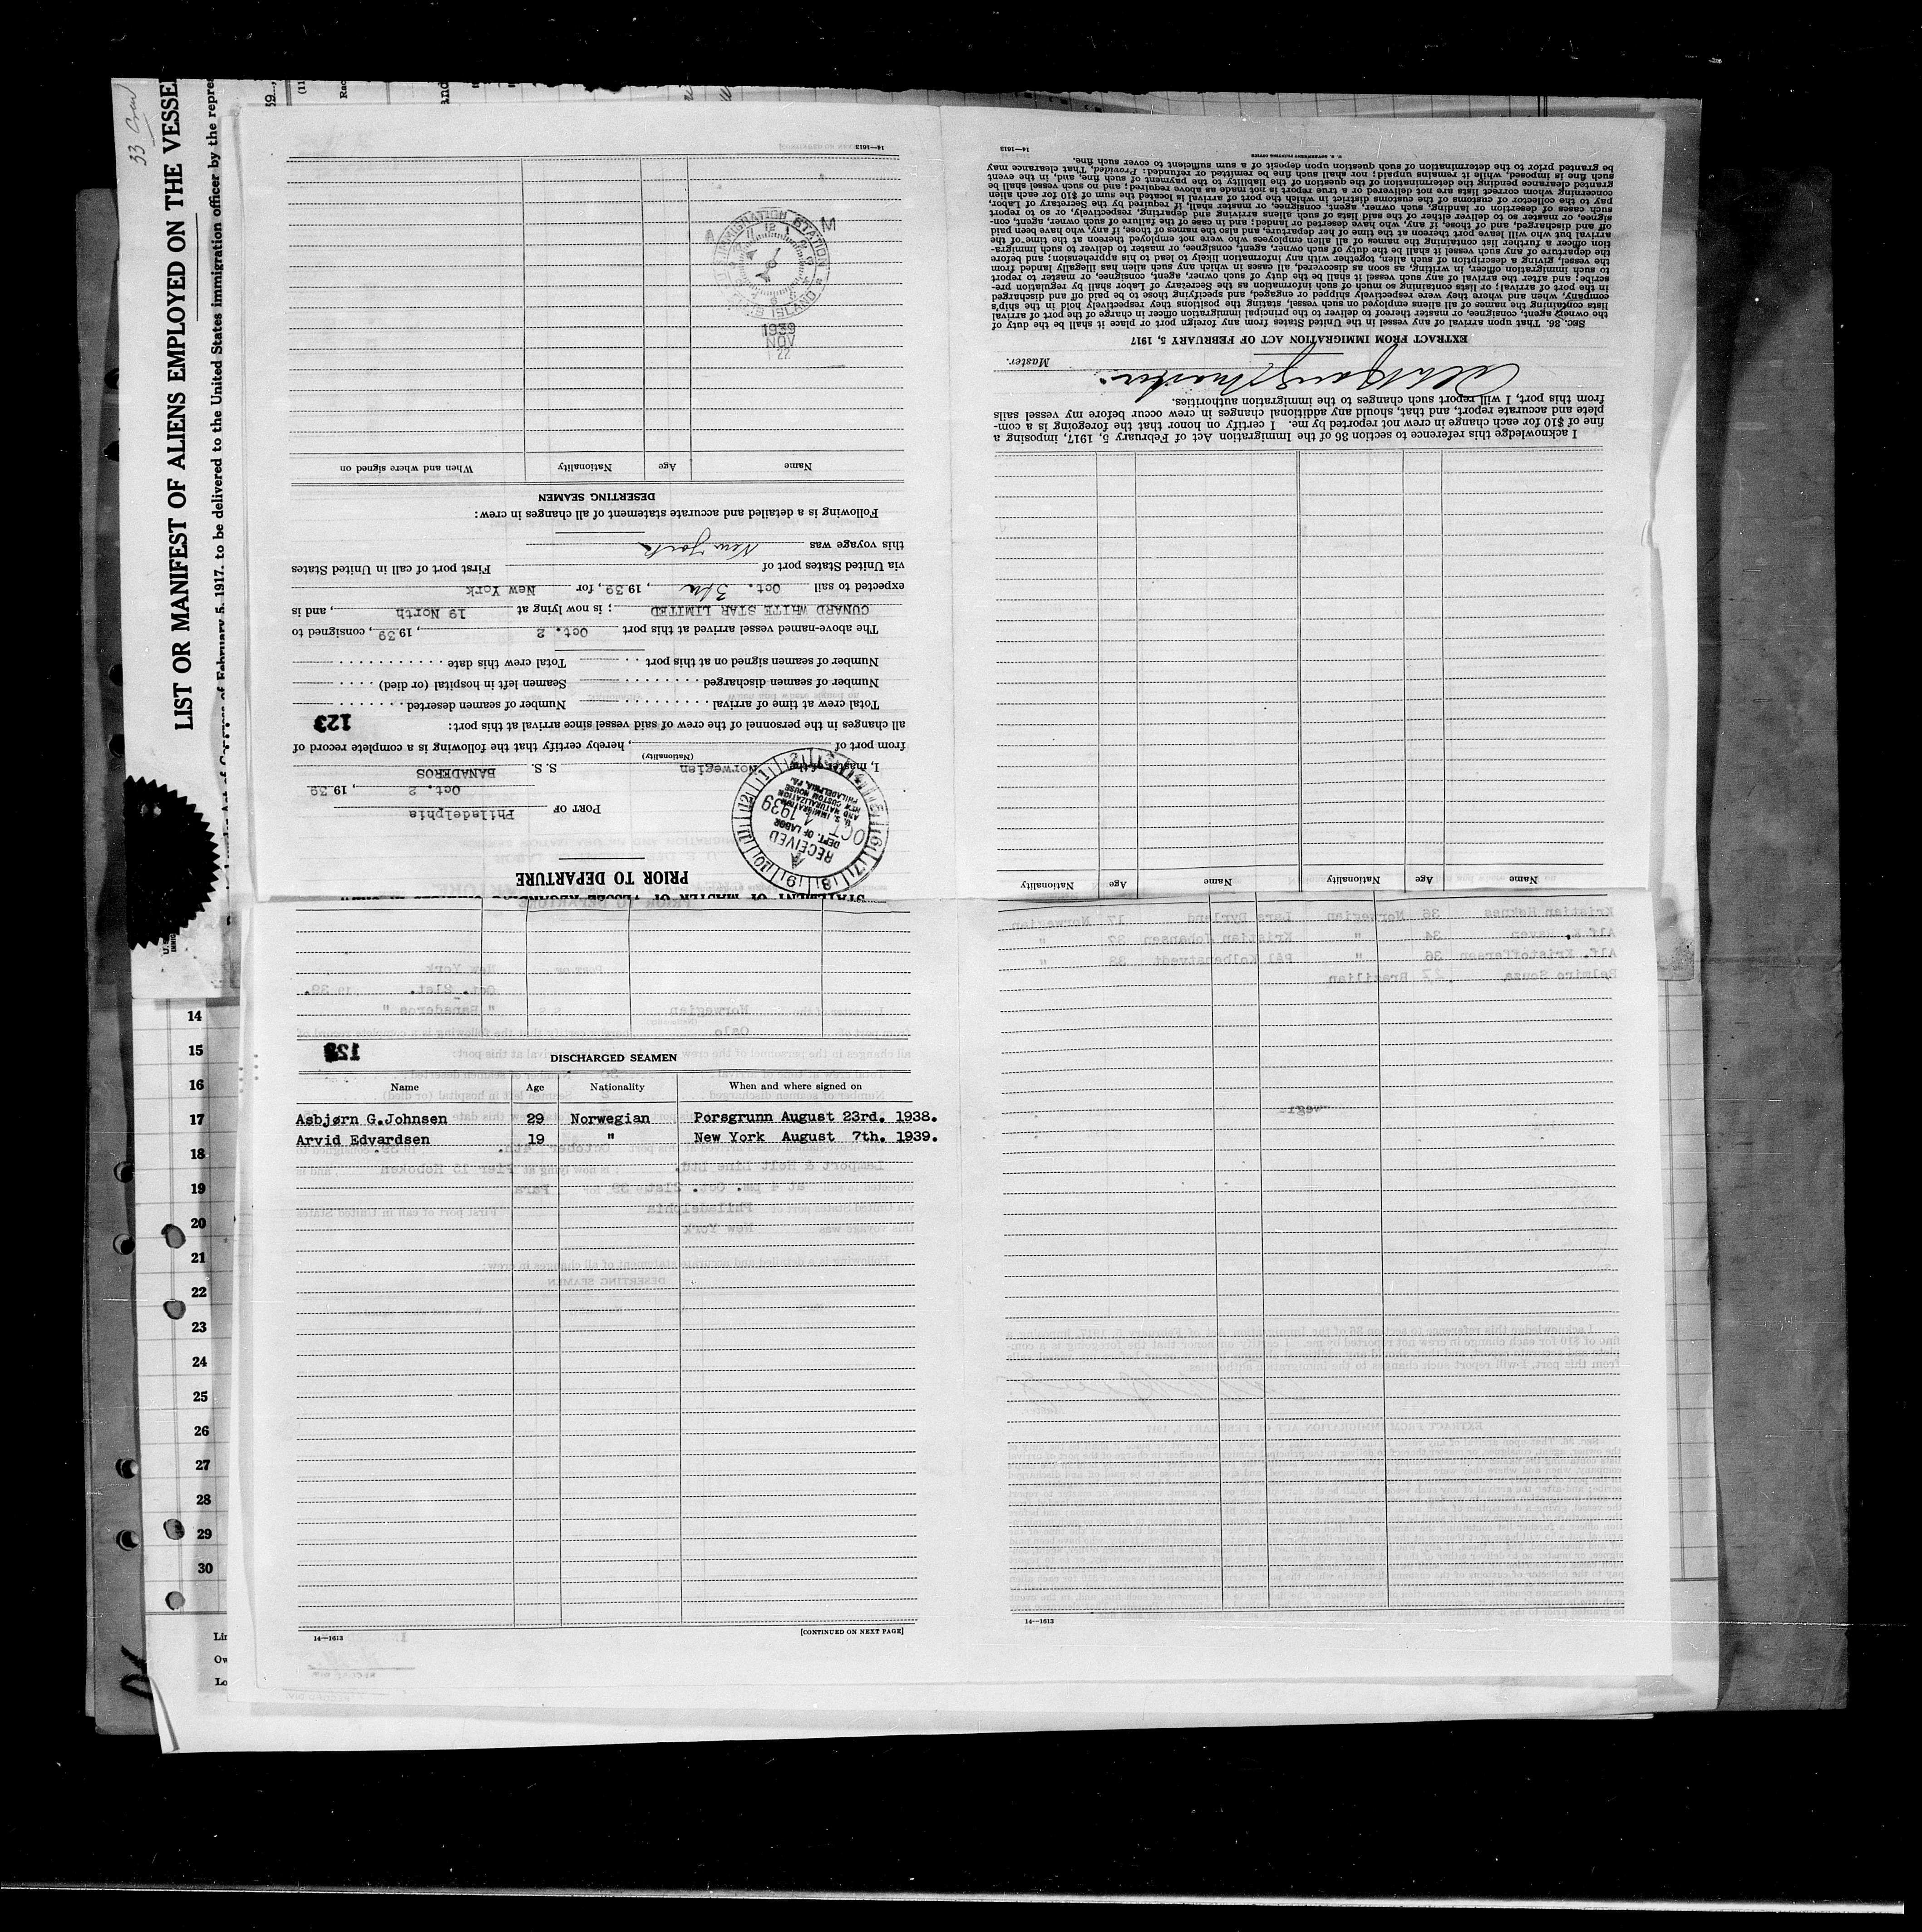 33 Crew
LIST OR MANIFEST OF ALIENS EMPLOYED ON THE VESSE
of February 5, 1917, to be delivered to the United States immigration officer by the repre
PRIOR TO DEPARTURE
PORT OF Philadelphia
Oct. 2, 1939
RECEIVED
DEPT. OF LABOR
OCT 4 1939
U. S. IMMIGRATION
AND NATURALIZATION
NEW CUSTOM HOUSE
PHILADELPHIA, PA.
I, master of the Norwegian S. S. BANADEROS
(Nationality)
from port of , hereby certify that the following is a complete record of
all changes in the personnel of the crew of said vessel since arrival at this port:
123
Total crew at time of arrival . . . . . . . . Number of seamen deserted . . . . . . .
Number of seamen discharged . . . . . . . . Seamen left in hospital (or died) . . . .
Number of seamen signed on at this port . . Total crew this date . . . . . . . . . . .
The above-named vessel arrived at this port Oct. 2, 1939, consigned to
CUNARD WHITE STAR LIMITED ; is now lying at 19 North, and is
expected to sail Oct. 3rd, 1939, for New York
via United States port of First port of call in United States
this voyage was New York
Following is a detailed and accurate statement of all changes in crew:
DESERTING SEAMEN
Name Age Nationality When and where signed on
1939
NOV
22
IMMIGRATION STATION
ELLIS ISLAND
A M
14—1613
Name Age Nationality Name Age Nationality
I acknowledge this reference to section 36 of the Immigration Act of February 5, 1917, imposing a
fine of $10 for each change in crew not reported by me. I certify on honor that the foregoing is a com-
plete and accurate report, and that, should any additional changes in crew occur before my vessel sails
from this port, I will report such changes to the immigration authorities.
Master.
EXTRACT FROM IMMIGRATION ACT OF FEBRUARY 5, 1917
SEC. 36. That upon arrival of any vessel in the United States from any foreign port or place it shall be the duty of
the owner, agent, consignee, or master thereof to deliver to the principal immigration officer in charge of the port of arrival
lists containing the names of all aliens employed on such vessel, stating the positions they respectively hold in the ship's
company, when and where they were respectively shipped or engaged, and specifying those to be paid off and discharged
in the port of arrival; or lists containing so much of such information as the Secretary of Labor shall by regulation pre-
scribe; and after the arrival of any such vessel it shall be the duty of such owner, agent, consignee, or master to report
to such immigration officer, in writing, as soon as discovered, all cases in which any such alien has illegally landed from
the vessel, giving a description of such alien, together with any information likely to lead to his apprehension; and before
the departure of any such vessel it shall be the duty of such owner, agent, consignee, or master to deliver to such immigra-
tion officer a further list containing the names of all alien employees who were not employed thereon at the time of the
arrival but who will leave port thereon at the time of her departure, and also the names of those, if any, who have been paid
off and discharged, and of those, if any, who have deserted or landed; and in case of the failure of such owner, agent, con-
signee, or master so to deliver either of the said lists of such aliens arriving and departing, respectively, or so to report
such cases of desertion or landing, such owner, agent, consignee, or master shall, if required by the Secretary of Labor,
pay to the collector of customs of the customs district in which the port of arrival is located the sum of $10 for each alien
concerning whom correct lists are not delivered or a true report is not made as above required; and no such vessel shall be
granted clearance pending the determination of the question of the liability to the payment of such fine, and, in the event
such fine is imposed, while it remains unpaid; nor shall such fine be remitted or refunded: Provided, That clearance may
be granted prior to the determination of such question upon deposit of a sum sufficient to cover such fine.
U. S. GOVERNMENT PRINTING OFFICE
14—1613
DISCHARGED SEAMEN
Name Age Nationality When and where signed on
Asbjørn G.Johnsen 29 Norwegian Porsgrunn August 23rd. 1938.
Arvid Edvardsen 19 " New York August 7th. 1939.
14—1613
[CONTINUED ON NEXT PAGE]
14—1613
14
15
16
17
18
19
20
21
22
23
24
25
26
27
28
29
30